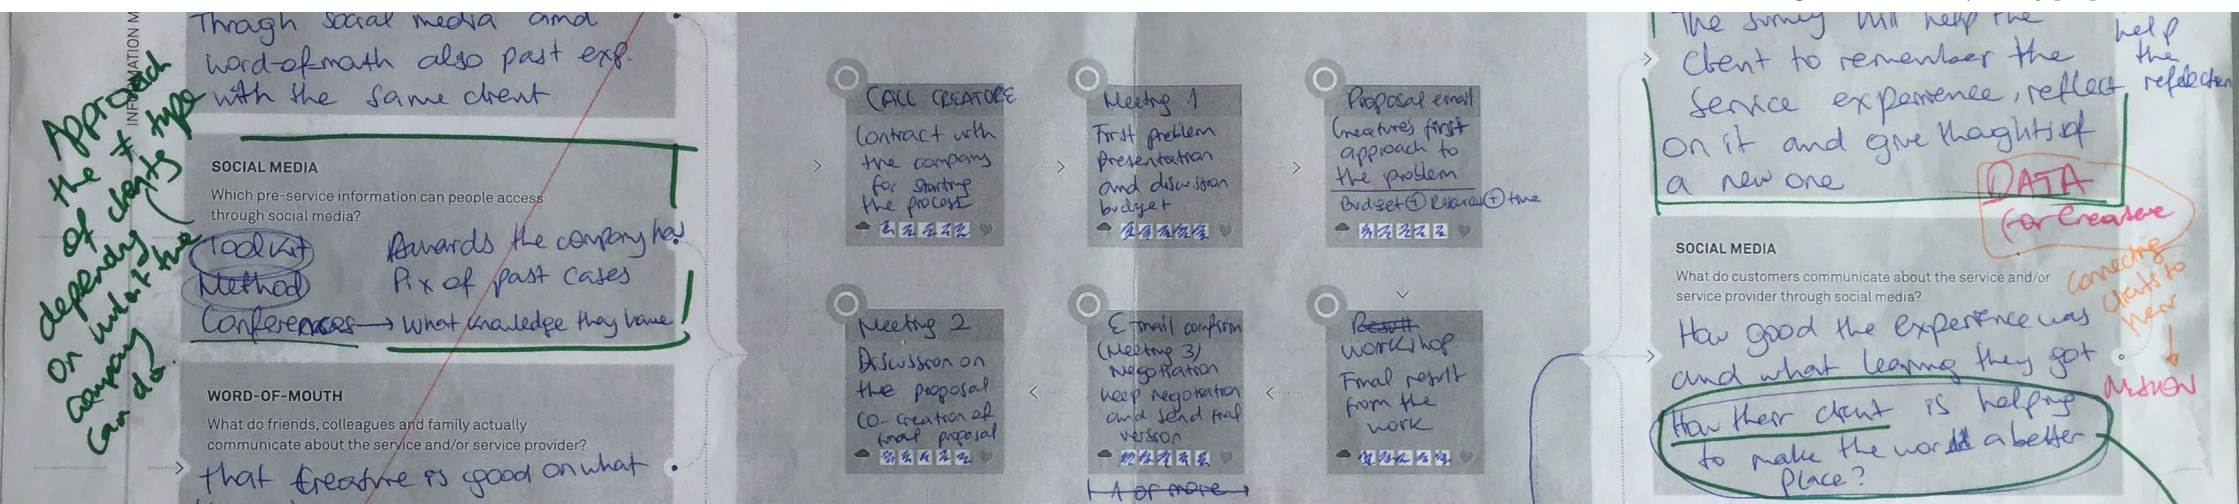 Through social media and
word-of-moth also past exp.
with the same client
INFORMATION M
Approach
the ≠ type
of clients
depending
on what the
company
can do.
SOCIAL MEDIA
Which pre-service information can people access
through social media?
Toolkit
Method
Conferences → what knowledge they have
Awards the company has
Pix of past cases
WORD-OF-MOUTH
What do friends, colleagues and family actually
communicate about the service and/or service provider?
that Creature is good on what
CALL CREATURE
Contract with
the company
for starting
the process
Meeting 1
First problem
presentation
and discussion
budget
Proposal email
Creatures first
approach to
the problem
Budget + + time
Meeting 2
Discussion on
the proposal
co-creation of
final proposal
E-mail confirm
(Meeting 3)
Negotiation
keep negotiation
and send final
version
1 or more
Result
workshop
Final result
from the
work
The survey will help the
client to remember the
service experience, reflect
on it and give thoughts of
a new one
help
the
reflection
DATA
for Creature
SOCIAL MEDIA
What do customers communicate about the service and/or
service provider through social media?
Connecting
clients to
new
How good the experience was
and what learning they got
How their client is helping
to make the world a better
place?